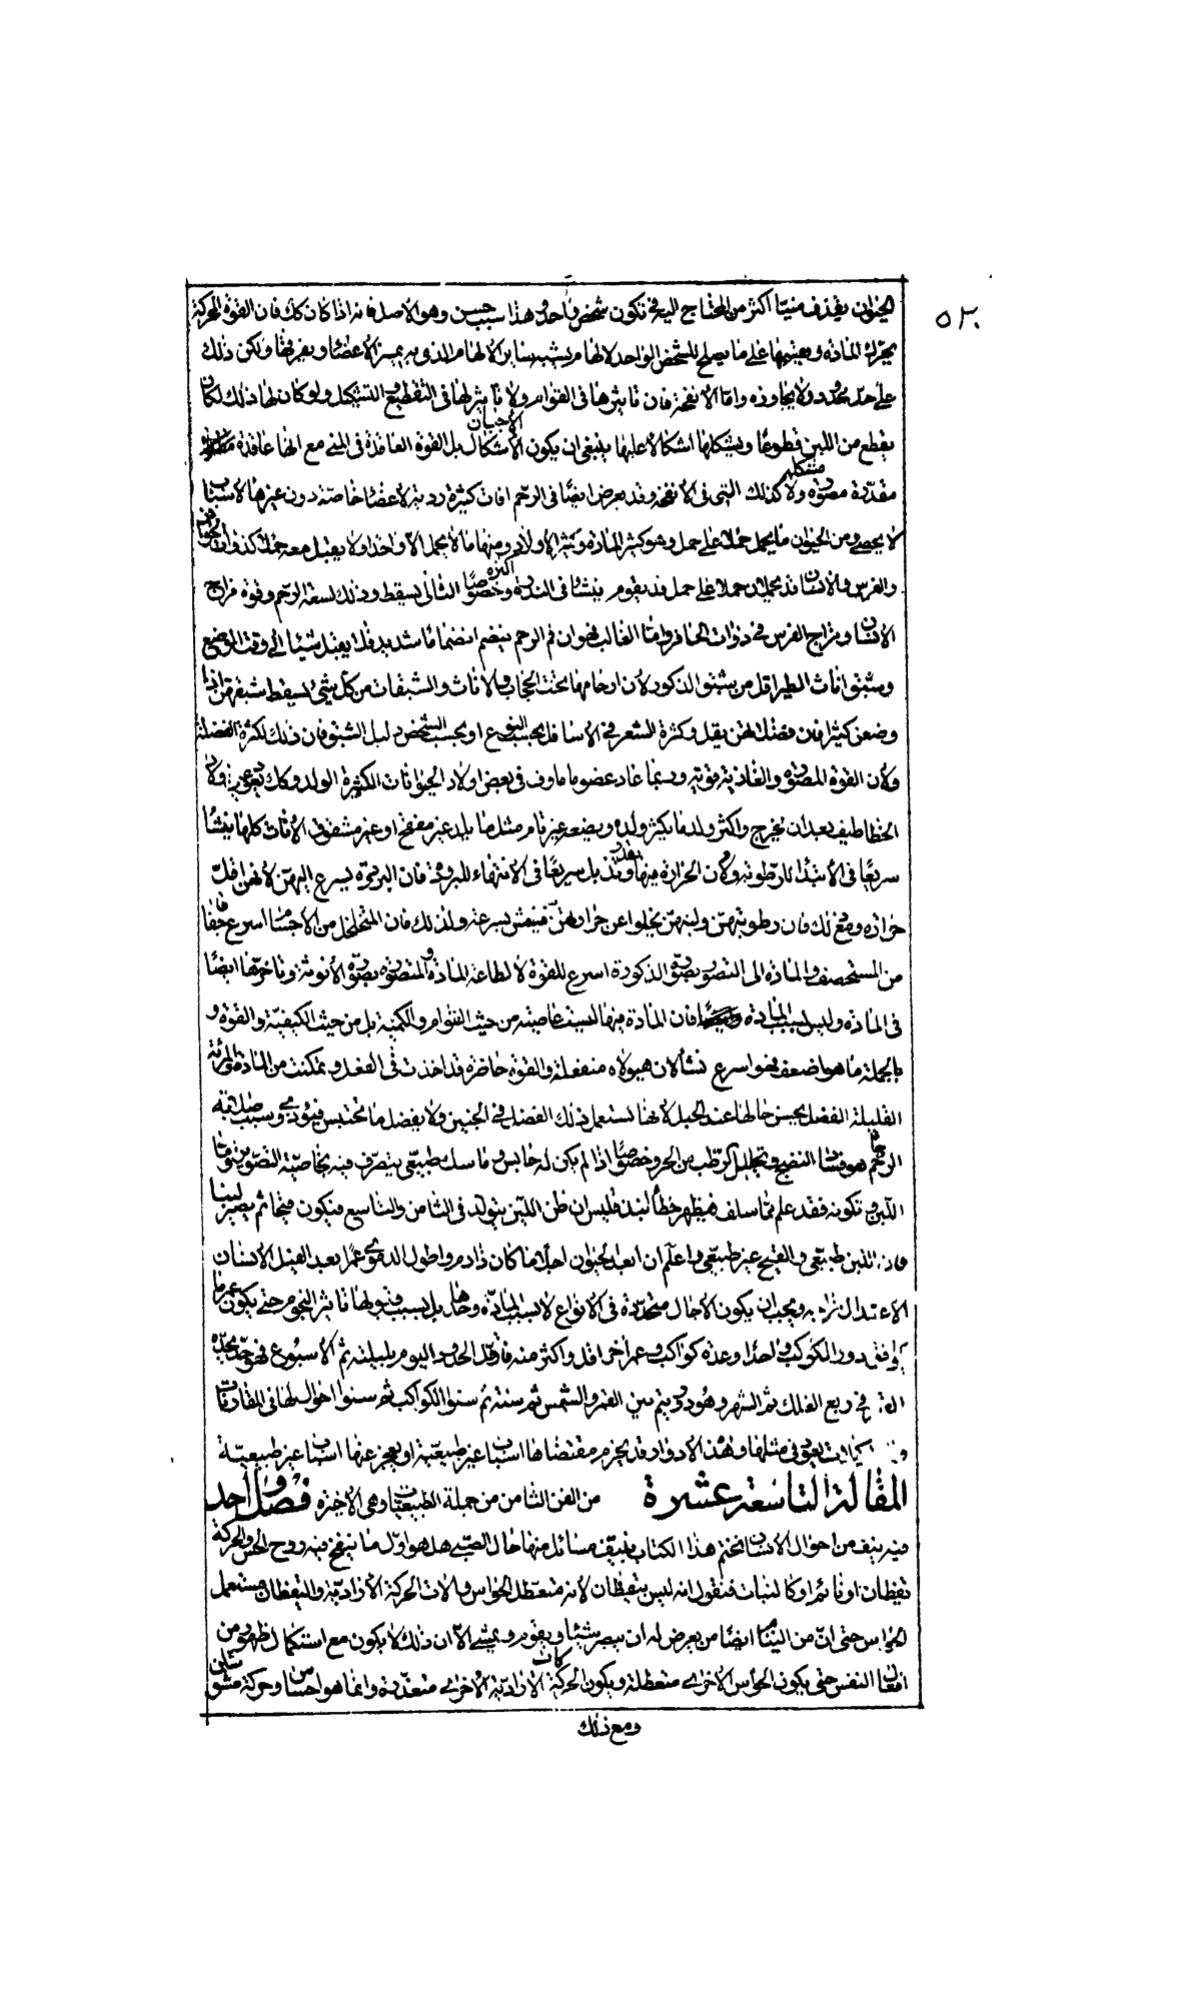 ٥٢٠
الحيوان يقذف منيا اكثر من المحتاج اليه في تكون شخص واحد وهذا سبب حسن وهو الاصل فانه اذا كان كك فان القوة المحركة
يحرك المادة ويعينها على ما يصلح للشخص الواحد لالهام يشبه ساير الالهام الذى به يميز الاعضاء ويفرقها ولكن ذلك
على حد محدود ولا يجاوزه واما الانفحة فان تاثيرها فى القوام ولا تاثير لها فى التقطيع والتشكيل ولو كان لها ذلك لكان
يقطع من اللبن قطوعا ويشكلها اشكالا عليها ينبغى ان يكون الاشكال الاجبان بل القوة العاقدة فى المنى مع انها عاقدة
مقدرة مصورة متشكلة ولا كذلك التى فى الانفحة وقد يعرض ايضا فى الرحم افات كثيرة ردية لاعضاء خاصة دون غيرها لاسباب
لا يحصى ومن الحيوان ما يحمل حملا على حمل وهو كثير المادة وكثير الاولاد ومنها ما لا يحمل الا واحدا ولا يقبل معه حملا كذوات الحوافر
والفرس والانسان قد يحملان حملا على حمل قد يقوم ينشا فى الندرة وخصوصا اكثره الثانى يسقط وذلك لسعة الرحم وقوة مزاج
الانسان ومزاج الفرس فى ذوات الحافر واما الغالب فهو ان فم الرحم ينضم انضماما شديدا فلا يقبل شيئا الى وقت الوضع
وشبق اناث الطير اقل من شبق الذكور لان ارحامها تحت الحجاب والاناث والشبقات من كل شىء يسقط شبقهن اذا
وضعن كثيرا فان فضلتهن يقل وكثرة الشعر فى الاسافل بحسب النوع او بحسب الشخص دليل الشبق فان ذلك لكثرة الفضلة
ولان القوة المصورة والغاذية قوية وربما عاد عضو ما ماوف فى بعض اولاد الحيوانات الكثيرة الولد وكك تعود عيون اولاد
الخطاطيف بعد ان يخرج واكثر ولد ما يكثر ولده ويضعه غير تام مثل ما يلد غير مفقح او غير مشقوق الاناث كلها ينشا
سريعا فى الابتداء للرطوبة ولان الحرارة فيها بقدر ويذبل سريعا فى الانتهاء للبرودة فان البرودة يسرع اليهن لانهن اقل
حرارة ومع ذلك فان رطوبتهن ولينهن يخلوا عن حرارتهن فيفش بسرعة ولذلك فان المتخلخل من الاجسام اسرع جفافا
من المستحصف والمادة الى التصور بصورة الذكورة اسرع للقوة لا لطاعة المادة والمتصورة بصورة الانوثة وتاخرها ايضا
فى المادة وليس لسبب المادة فان المادة فيها ليست عاصية من حيث القوام والكمية بل من حيث الكيفية والقوة و
بالجملة ما هو اضعف فهو اسرع نشأ لان هيولاه منفعلة والقوة حاضرة قد اخذت فى الفعل وتمكنت من المادة المراة
القليلة الفضل يحسن حالها عند الحبل لانها تستعمل ذلك الفضل فى الجنين ولا يفضل ما يحتبس فيؤذى وسبب صلابة
الرحم هو فقدان النضج وتحليل الرطب من الحر وخصوصا اذا لم يكن له حابس وماسك طبيعى يتصرف فيه بخاصية التصوير
اللبن وتكونه فقد علم مما سلف فيظهر خطأ انبذقليس ان ظن اللبن يتولد فى الثامن والتاسع فيكون قيحا ثم يصير لبنا
فان اللبن طبيعى والقيح غير طبيعى واعلم ان ابعد الحيوان اجلا ما كان ذا دم واطول الدموى عمرا بعد الفيل الانسان
الاعتدال مزاجه ويجب ان يكون الاجال متحددة فى الانواع لا بسبب المادة وحدها بل بسبب قبولها تاثير النجوم حتى يكون عمرها
يوافق دور الكوكب واحدا وعدة كواكب وعمر اخر اقل واكثر منه فاول الحدود اليوم بليلته ثم الاسبوع فهو حد يحده
القمر فى ربع الفلك ثم الشهر وهو دور يتم بين القمر والشمس ثم سنة ثم سنو الكواكب ثم سنوا احوال لها فى المقارنات
يعود فى مثلها وهذه الادوار قد يخرم مقتضاها اسباب غير طبيعية او يعجز عنها اسباب غير طبيعية
المقالة التاسعة عشرة من الفن الثامن من جملة الطبيعيات وهى الاخيرة فصل واحد
فيه نتف من احوال الانسان نختم هذا الكتاب بنتف مسائل منها حال الصبى هل هو اول ما ينفخ فيه روح الحس والحركة
يقظان او نائم او كالنبات فنقول انه ليس بيقظان لانه متعطل الحواس والات الحركة الارادية واليقظان مستعمل
الحواس حتى ان من النيام ايضا من يعرض له ان يبصر شيئا ويقوم ويمشى الا ان ذلك لا يكون مع استكمال ظهور من
افعال النفس حتى يكون الحواس الاخرى متعطلة ويكون الحركة كات الارادية الاخرى متعددة وانما هو احساس وحركة مشوبتان
ومع ذلك